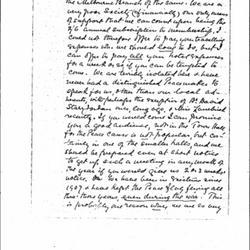 the Melbourne Branch of the same. We are a
very poor Society (financially) our only means
of support that we can count upon being the
2/6 Annual Subscription to membership, &
could not therefore offer to pay your travelling
expenses which we should long to do, but I
can offer to pay all your Hotel expenses
for a week or so if you can be tempted to
come. We are terribly isolated here & have
never had a distinguished Peacemaker to
speak for us, other than our local ad-
herents, with perhaps the exception of Dr David
Starr Jordan not long ago, & Wm Lansbury
recently. If you would come I can promise
you a good audience, not in the Town Hall
for the Peace cause is not popular, but cer-
tainly in one of the smaller halls, and we
should be prepared even at short notice
to get up such a meeting in any month of
the year if you would give us 2 or 3 weeks
notice. We have been in existence since
1907 & have kept the Peace flag flying all
thro' those years, even during the war. This
is probably one reason why we are so very